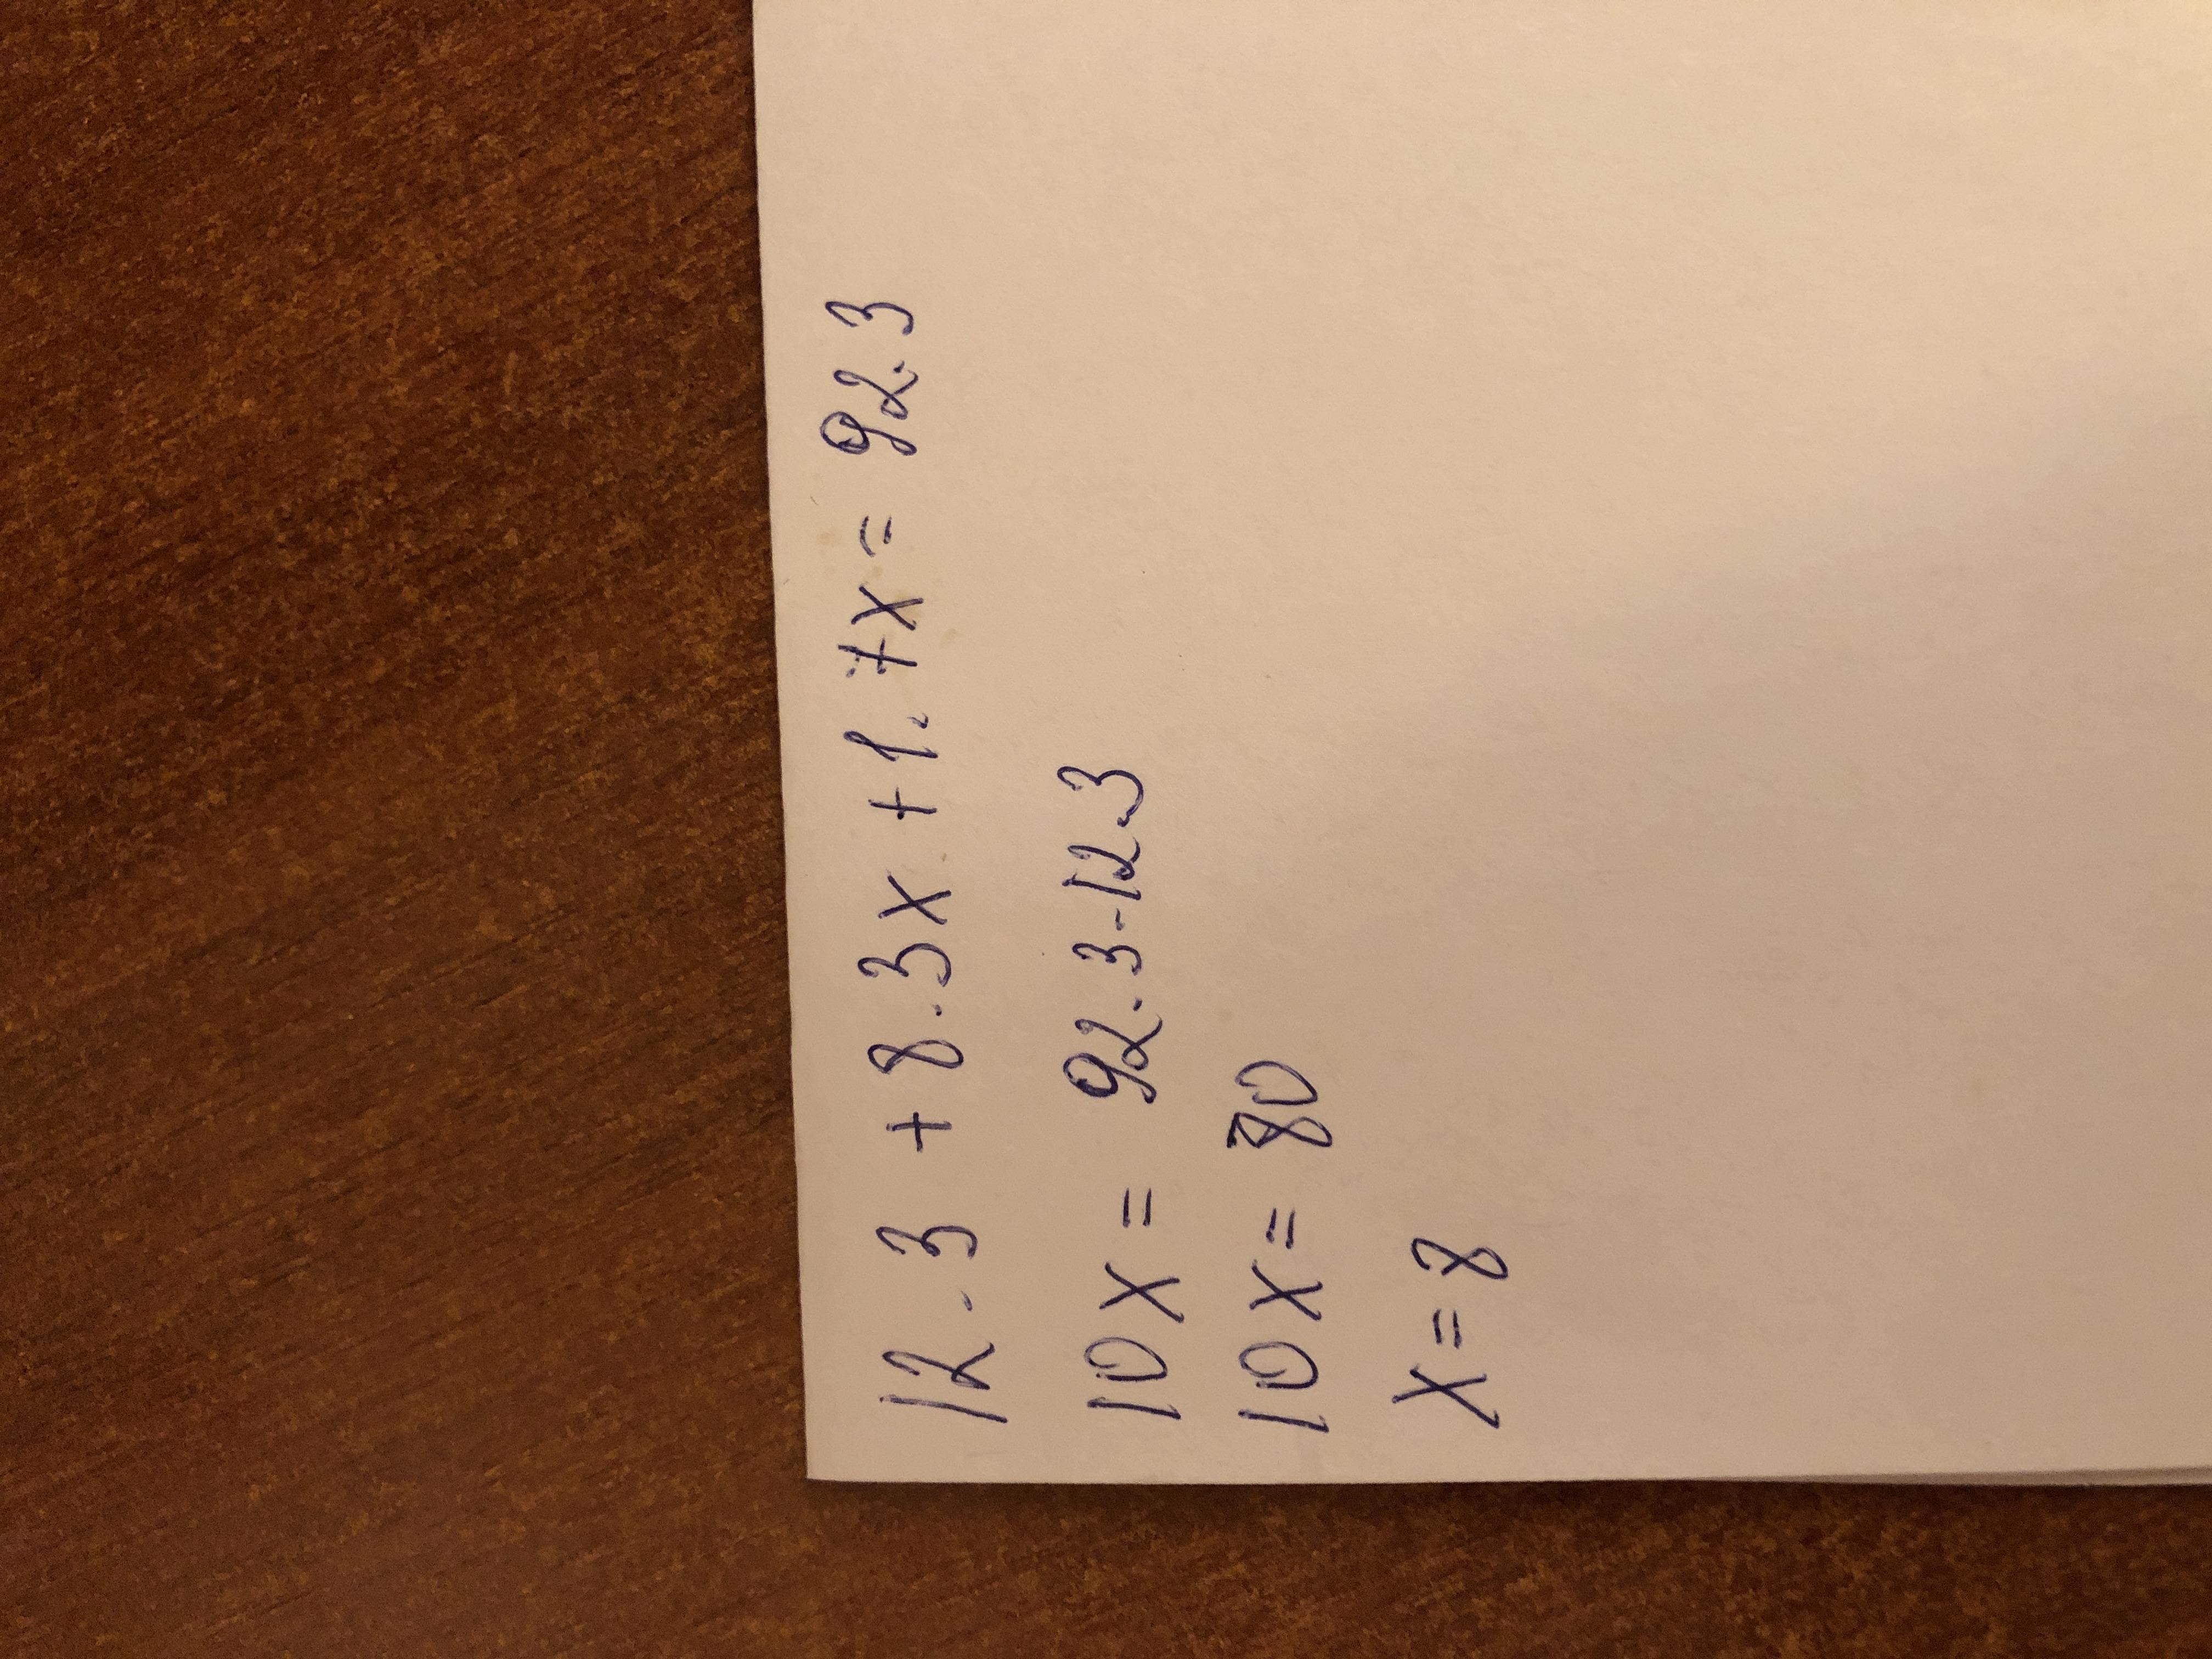 12.3 + 8.3x + 1.7x = 92.3
10x = 92.3-12.3
10x = 80
x = 8